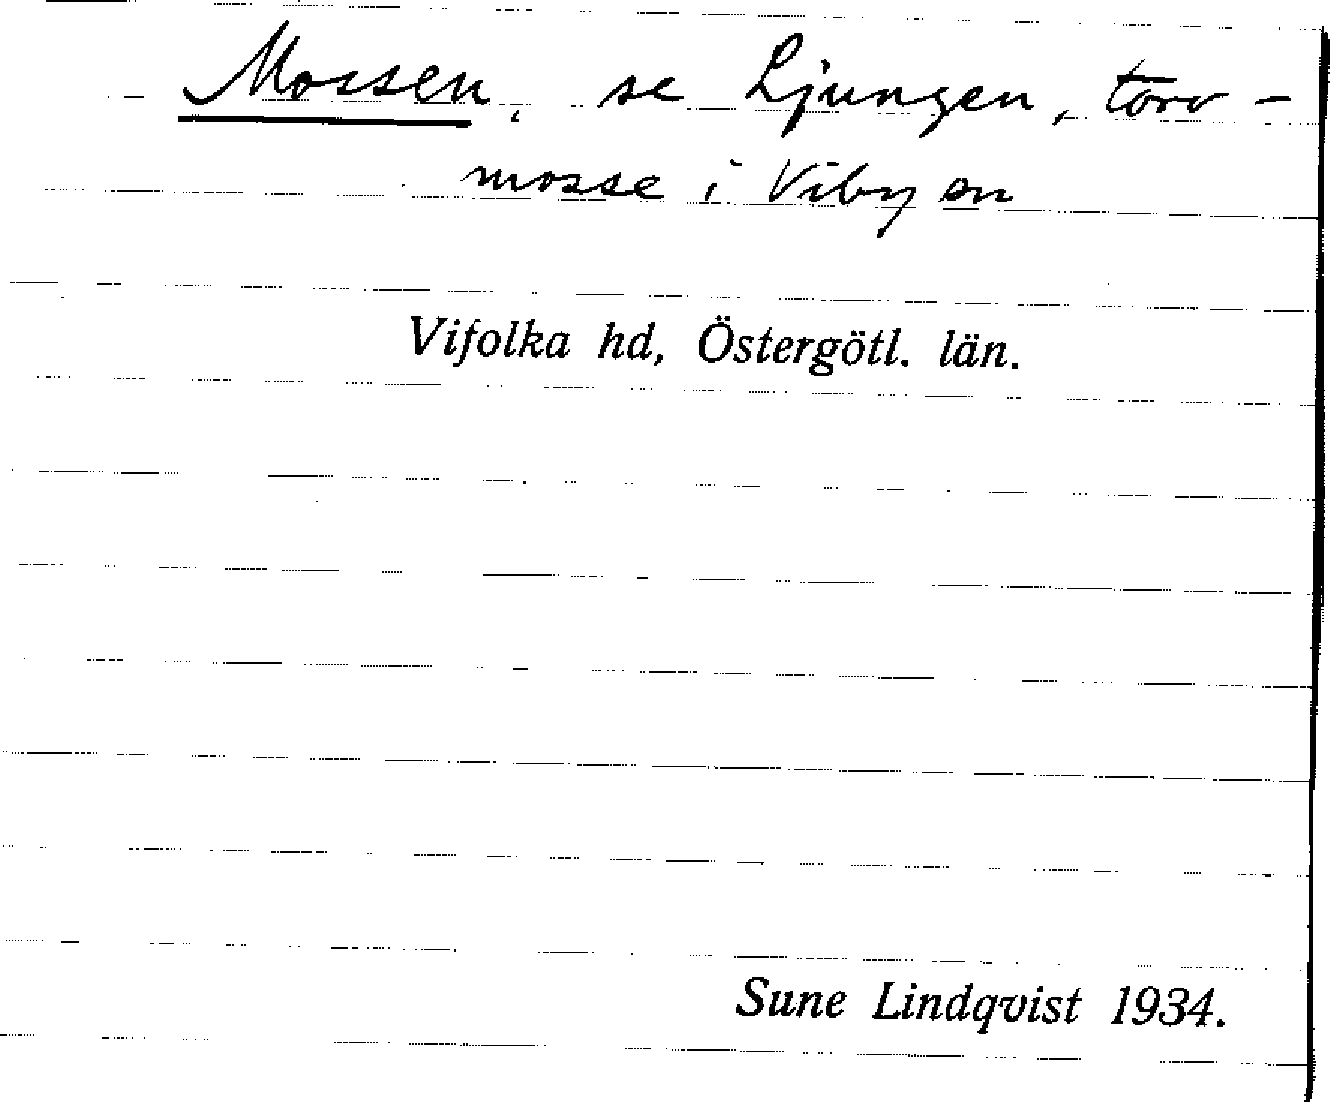 Mossen, se Ljungen, torv-
mosse i Viby sn
Vifolka hd, Östergötl. län.
Sune Lindqvist 1934.